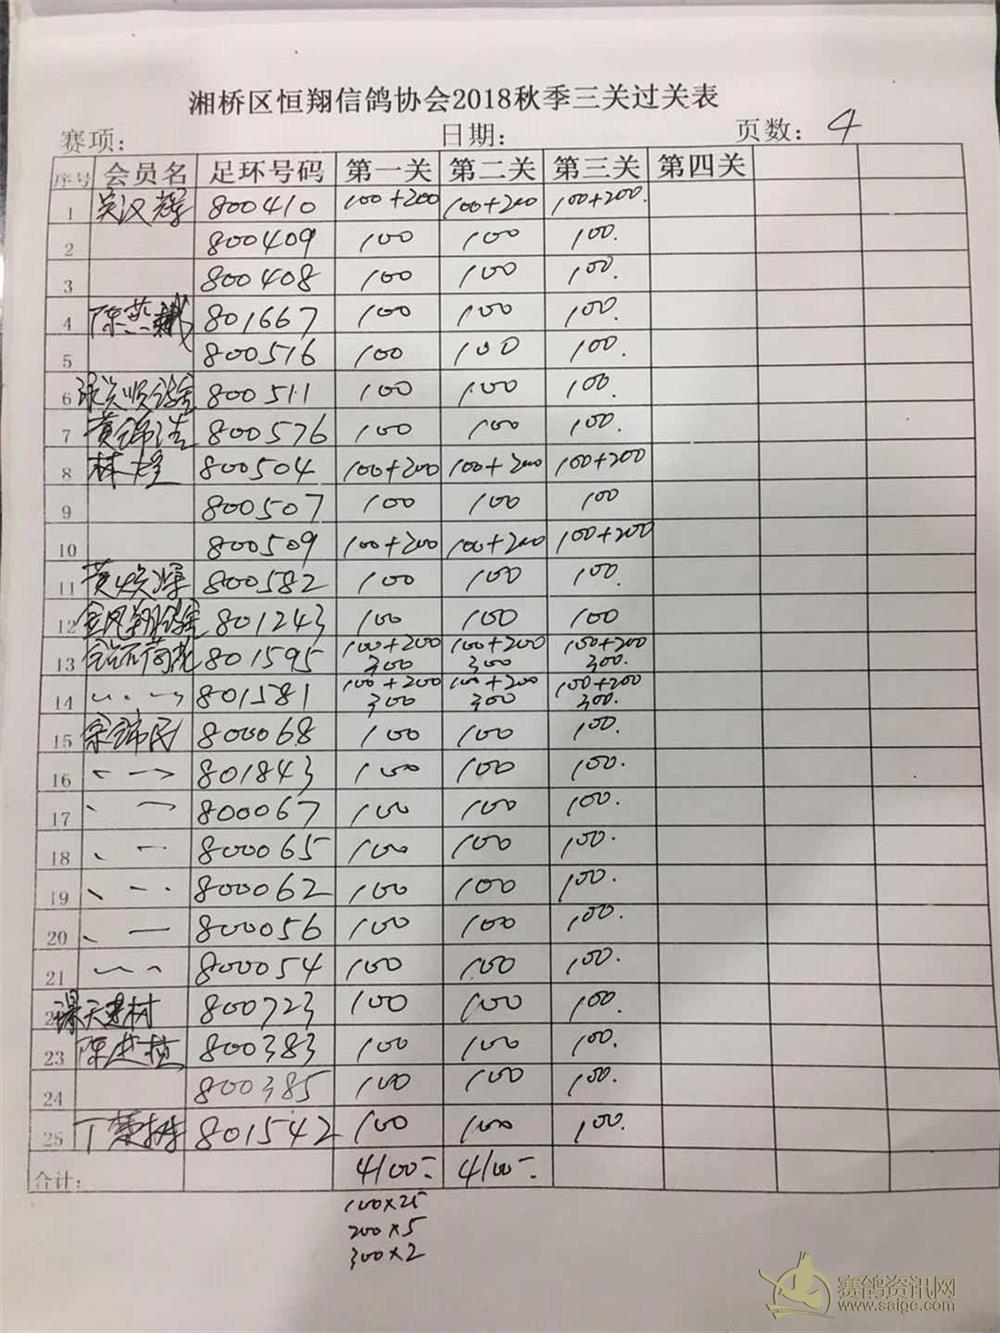 湘桥区恒翔信鸽协会2018秋季三关过关表
赛项: 日期: 页数: 4
序号 会员名 足环号码 第一关 第二关 第三关 第四关
1 吴汉辉 800410 100+200 100+200 100+200.
2 800409 100 100 100.
3 800408 100 100 100.
4 陈燕 801667 100 100 100.
5 800516 100 100 100.
6 顺鸽舍 800511 100 100 100
7 黄锦浩 800576 100 100 100.
8 林煌 800504 100+200 100+200 100+200
9 800507 100 100 100
10 800509 100+200 100+200 100+200
11 黄焕辉 800582 100 100 100.
12 金凤翔鸽舍 801243 100 100 100
13 801595 100+200 100+200 100+200
300 300 300.
14 801581 100+200 100+200 100+200
300 300 300.
15 宗锦民 800068 100 100 100.
16 801843 100 100 100.
17 800067 100 100 100.
18 800065 100 100 100.
19 800062 100 100 100.
20 800056 100 100 100.
21 800054 100 100 100.
天建材 800723 100 100 100.
23 陈 800383 100 100 100.
24 800385 100 100 100.
25 丁 801542 100 100 100.
合计: 4100 4100
100×25
200×5
300×2
赛鸽资讯网
www.saige.com